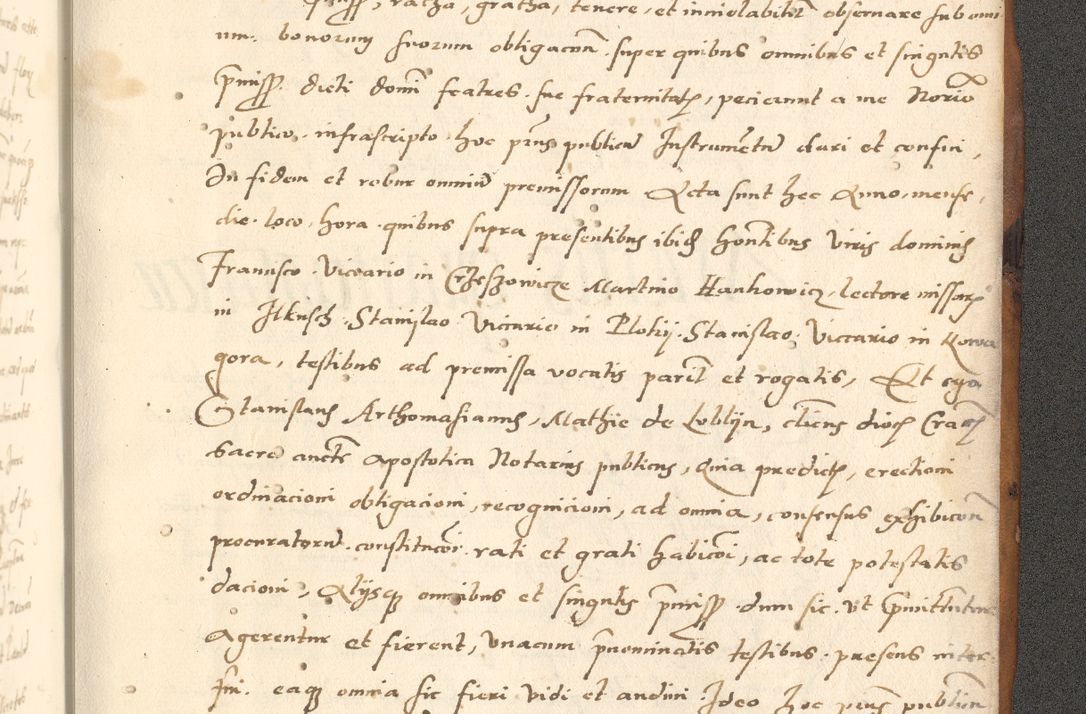 ratha, gratha, tenere, et inviolabiliter observare sub omni
um bonorum suorum obligacione super quibus omnibus et singulis
premissis dicti domini fratres sue fraternitatis, pecierunt a me Notario
publico infrascripto hoc presens publicum Instrumentum dari et confici,
In fidem et robur omnium premissorum Acta sunt hec Anno, mense,
die loco, hora quibus supra presentibus ibidem honestibus viris dominis
Francisco Viccario in Crzeszowicze Martino Hankowicz, lectore missarum
in Ilkusch Stanislao Viccario in Plokij Stanislao Viccario in Kowa
gora, testibus ad premissa vocatis pariter et rogatis, Et ego
Stanislaus Arthomasianus, Mathie de Loblijn, clericus dioc Crac
Sacre aucte Apostolica Notarius publicus, Quia predictis, erectioni
ordinacioni obligacioni, recognicioni, ad omnia, consensus exhibicioni
procuratorum constitucioni rati et grati habicioni, ac tote potestatis
dacioni, Alijsque omnibus et singulis premissis dum sic ut premittuntur
Agerentur et fierent, Unacum prenominatis testibus presens inter
fui eaque omnia sic fieri vidi et audivi Ideo hoc presens publicum